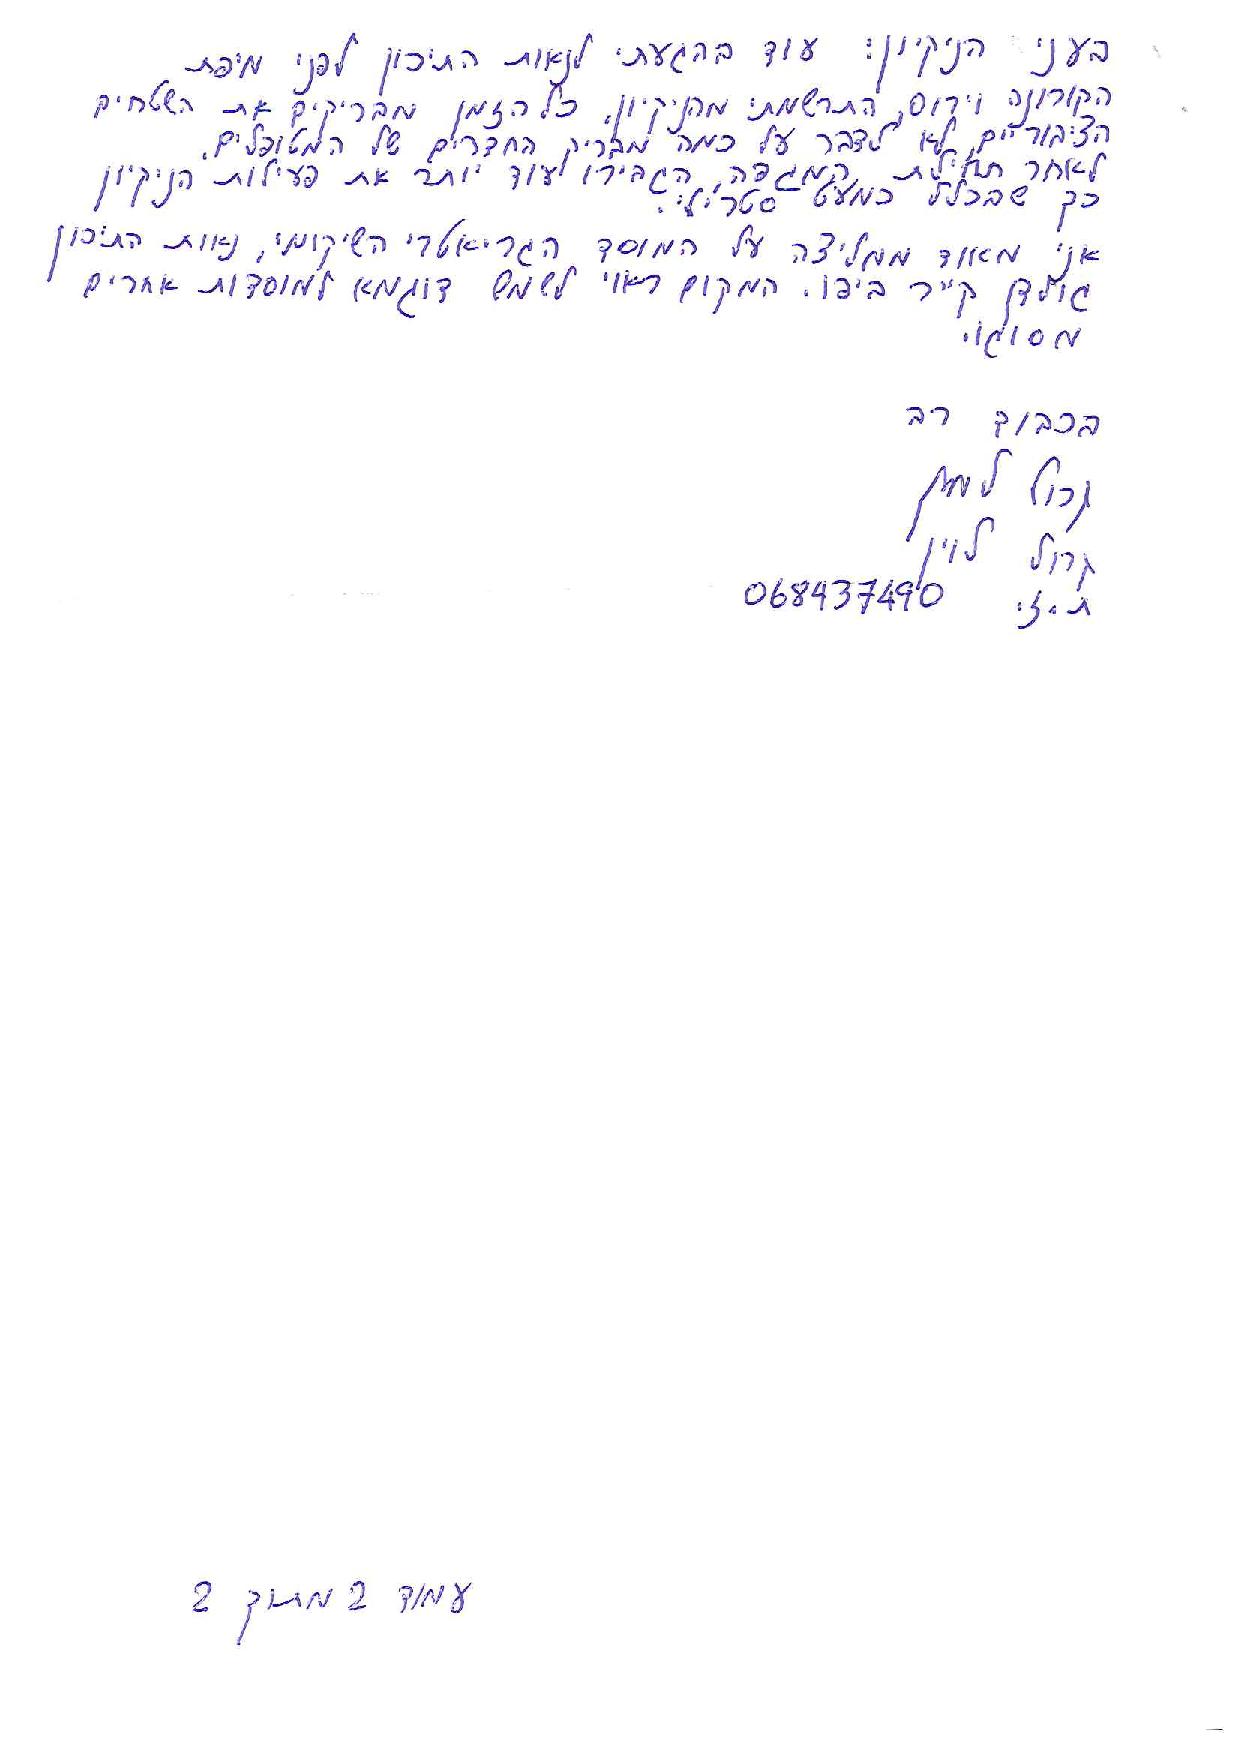 בעני הניקיון: עוד בהגעתי לנאות התיכון לפני מיפת
הקורונה וירוס, התרשמתי מהניקיון. כל הזמן מבריקים את השטחים
הציבוריים, לא לדבר על כמה מבריק החדרים של המטופלים.
לאחר תחילת המגפה, הגבירו לעוד יותר את פעילות הניקיון
כך שבכלל כמעט סטרילי.
אני מאוד ממליצה על המוסד הגריאטרי השיקומי, נאות התיכון
גולדן קייר ביפו. המקום ראוי לשמש דוגמא למוסדות אחרים
מסוגו.
בכבוד רב
קרול לוין
ת.ז. 068437490
עמוד 2 מתוך 2